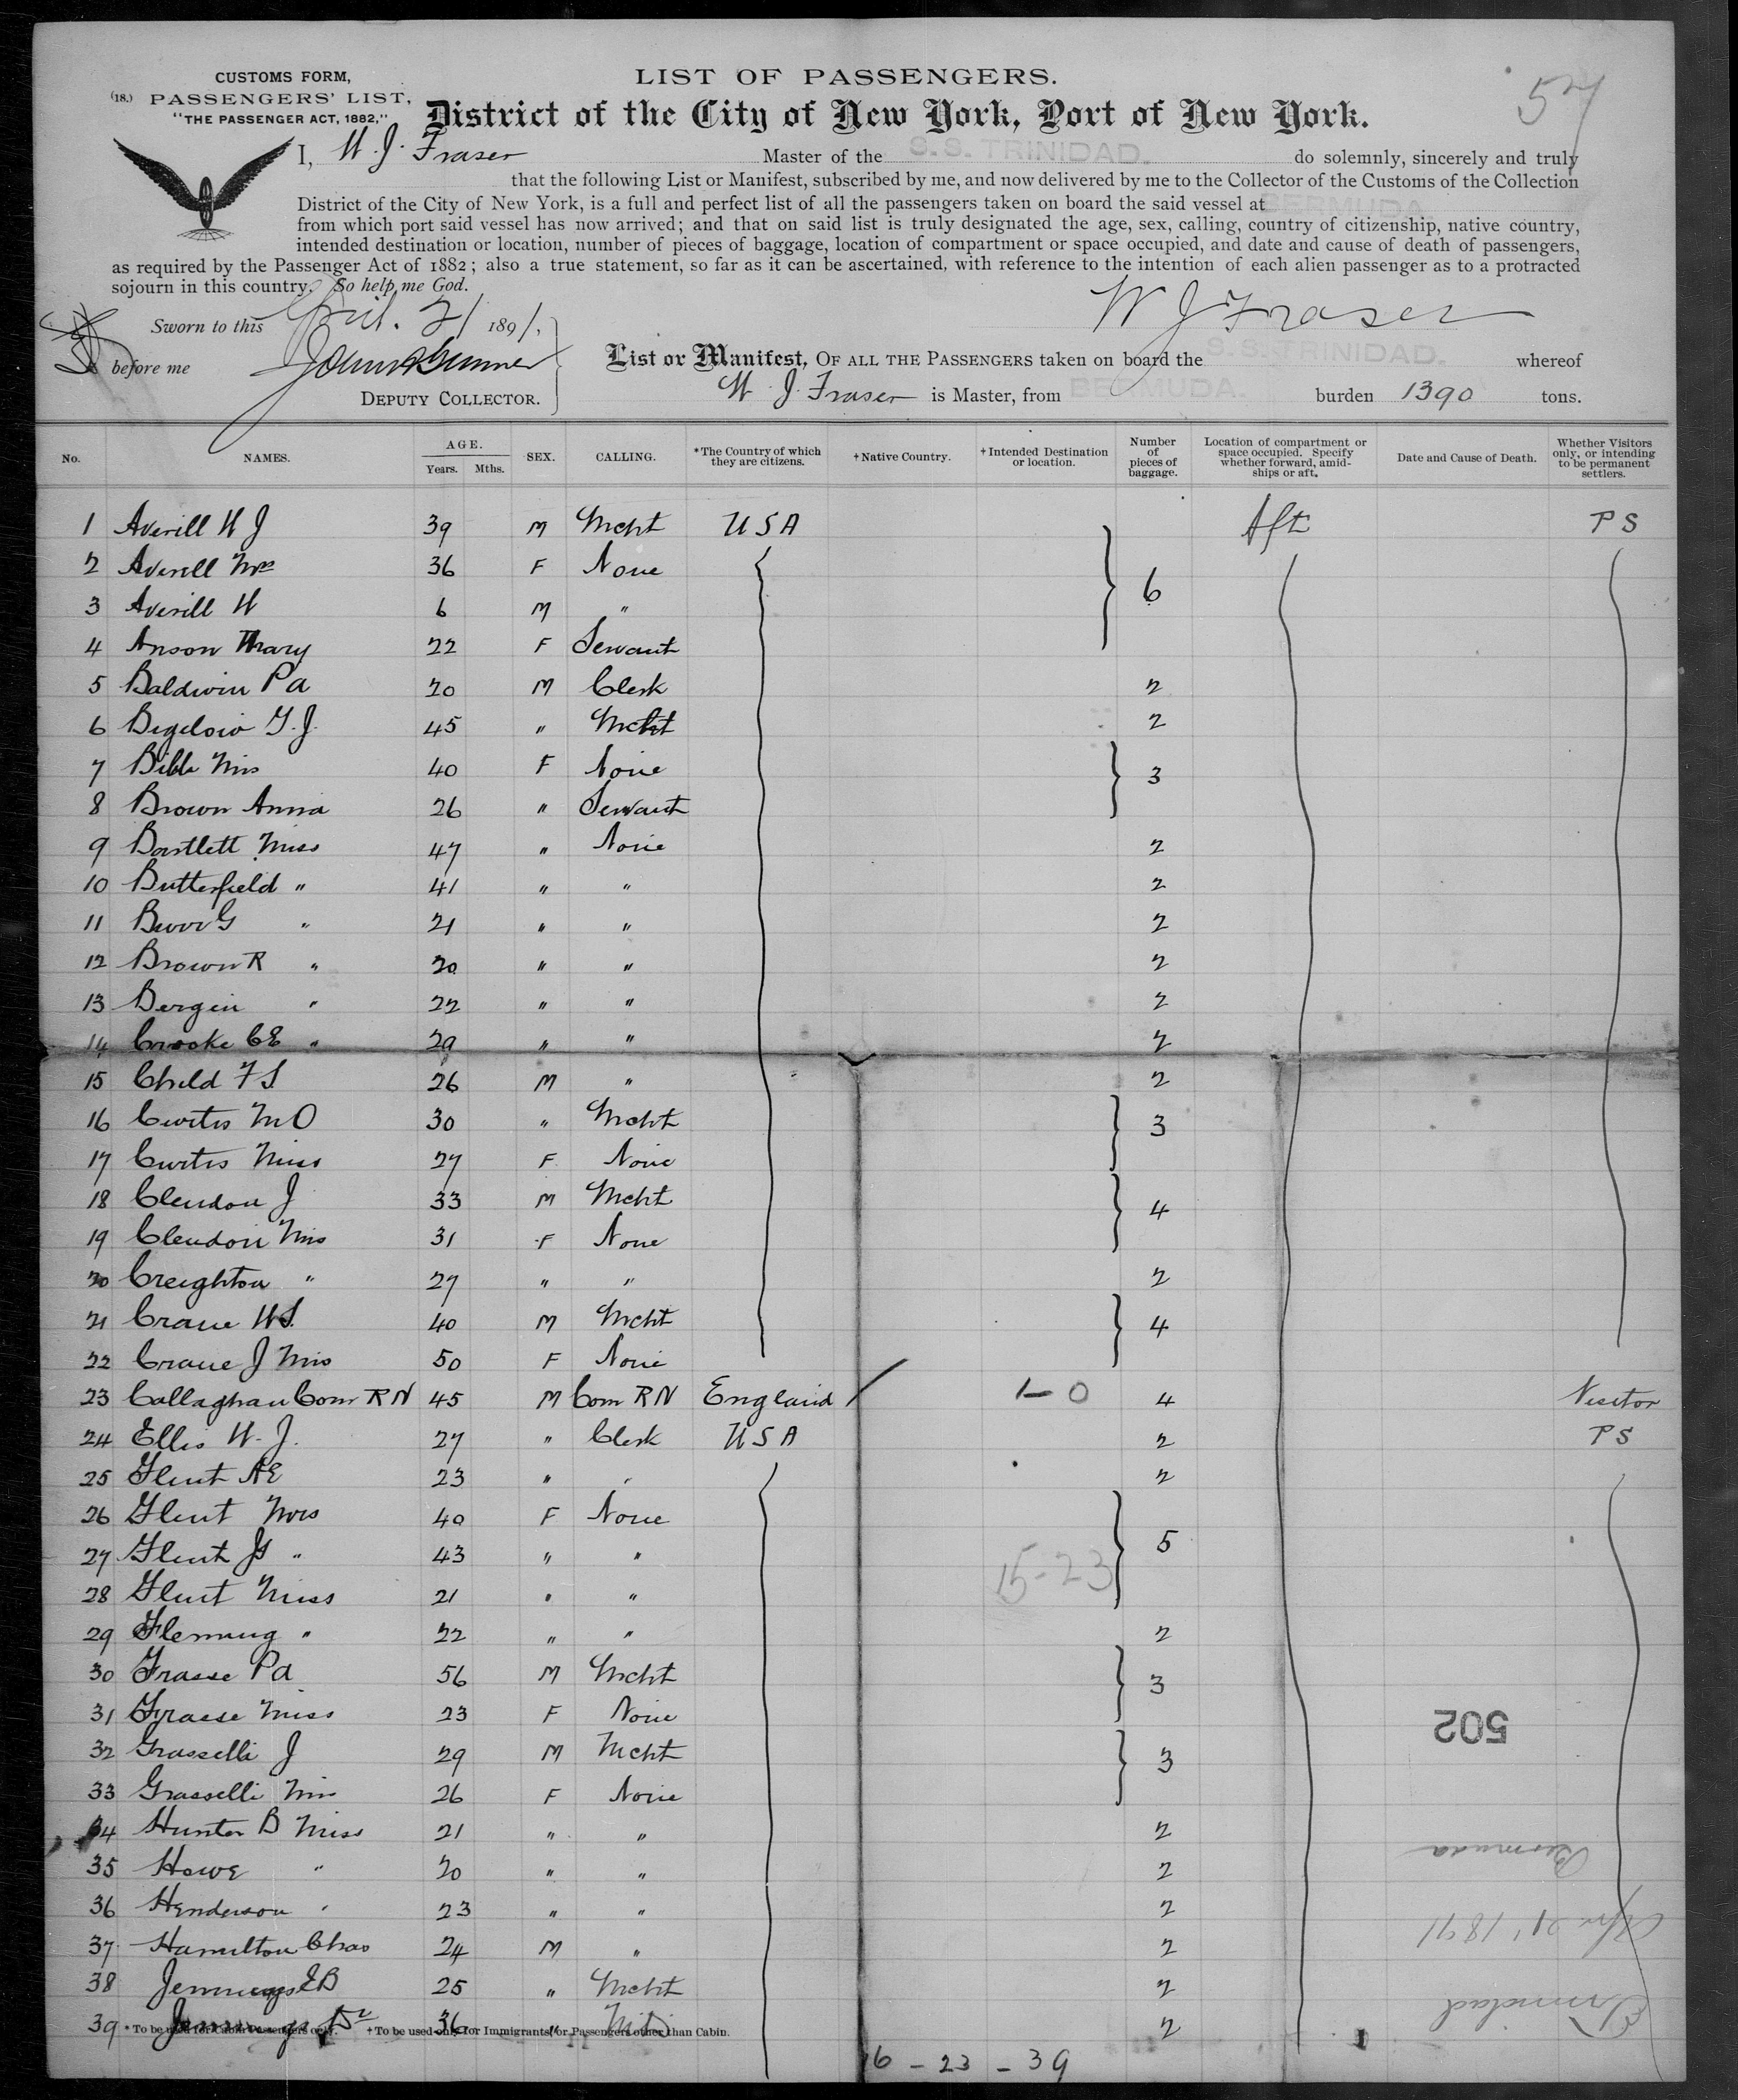 CUSTOMS FORM,
(18.) PASSENGERS' LIST,
"THE PASSENGER ACT, 1882,"
LIST OF PASSENGERS.
57
District of the City of New York, Port of New York.
I, W. J. Fraser Master of the S. S. TRINIDAD. do solemnly, sincerely and truly
that the following List or Manifest, subscribed by me, and now delivered by me to the Collector of the Customs of the Collection
District of the City of New York, is a full and perfect list of all the passengers taken on board the said vessel at BERMUDA.
from which port said vessel has now arrived; and that on said list is truly designated the age, sex, calling, country of citizenship, native country,
intended destination or location, number of pieces of baggage, location of compartment or space occupied, and date and cause of death of passengers,
as required by the Passenger Act of 1882; also a true statement, so far as it can be ascertained, with reference to the intention of each alien passenger as to a protracted
sojourn in this country. So help me God.
W J Fraser
Sworn to this April. 21 1891.
before me
DEPUTY COLLECTOR.
List or Manifest, OF ALL THE PASSENGERS taken on board the S. S. TRINIDAD. whereof
W. J. Fraser is Master, from BERMUDA. burden 1390 tons.
No. NAMES. AGE. Years. Mths. SEX. CALLING. *The Country of which they are citizens. †Native Country. †Intended Destination or location. Number of pieces of baggage. Location of compartment or space occupied. Specify whether forward, amidships or aft. Date and Cause of Death. Whether Visitors only, or intending to be permanent settlers.
1 Averill W J 39 M Mcht USA Aft P S
2 Averill Mrs 36 F None 6
3 Averill W 6 M "
4 Anson Mary 22 F Servant
5 Baldwin P A 20 M Clerk 2
6 Bigelow G. J. 45 " Mcht 2
7 Bibb Mrs 40 F None 3
8 Brown Anna 26 " Servant
9 Bartlett Miss 47 " None 2
10 Butterfield " 41 " " 2
11 Burr G " 21 " " 2
12 Brown R " 20 " " 2
13 Bergin " 22 " " 2
14 Crooke C E " 29 " " 2
15 Child F S 26 M " 2
16 Curtis M O 30 " Mcht 3
17 Curtis Miss 27 F None
18 Clendon J 33 M Mcht 4
19 Clendon Mrs 31 F None
20 Creighton " 27 " " 2
21 Crane W S. 40 M Mcht 4
22 Crane J Mrs 50 F None
23 Callaghan Com R N 45 M Com R N England 1-0 4 Visitor
24 Ellis W. J. 27 " Clerk USA 2 P S
25 Flint A E 23 " " 2
26 Flint Mrs 40 F None 5
27 Flint " 43 " "
28 Flint Miss 21 " " 15-23
29 Fleming " 22 " " 2
30 Frasse P A 56 M Mcht 3
31 Frasse Miss 23 F None
32 Grasselli J 29 M Mcht 3
33 Grasselli Mrs 26 F None
34 Hunter B Miss 21 " " 2
35 Howe " 20 " " 2
36 Henderson " 23 " " 2
37 Hamilton Chas 24 M " 2
38 Jennings E B 25 " Mcht 2
39 Jennings Dr 36 " M D 2
*To be used for Cabin Passengers only. †To be used only for Immigrants, or Passengers other than Cabin.
16 - 23 - 39
502
Bermuda
Apr 21, 1891
Trinidad